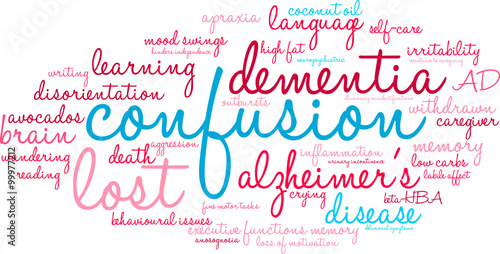 coconut oil
apraxia language self-care
mood swings high fat irritability
hinders independence neuropsychiatric resistance to caregiving
writing learning dementia AD
disorientation outbursts
avocados confusion withdrawn
brain caregiver
wandering death aggression inflammation memory
reading lost urinary incontinence low carbs
alzheimer's labile affect
crying beta-HBA
fine motor tasks disease
behavioural issues executive functions memory behavioral symptoms
anosognosia loss of motivation
Adobe Stock | #99977212